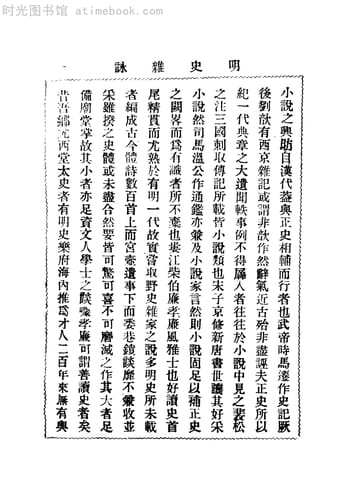 时光图书馆 - atimebook.com
明史雜詠 一
小說之興昉自漢代蓋與正史相輔而行者也武帝時馬遷作史記厥
後劉歆有西京雜記或謂非歆作然辭氣近古殆非盡誣夫正史所以
紀一代典章之大遺聞軼事例不得屬入者往往於小說中見之裴松
之注三國刺取傳記所載皆小說類也宋子京修新唐書世譏其好采
小說然司馬溫公作通鑑亦兼及小說家言然則小說固足以補正史
之闕畧而爲有識者所不棄也婁江柴伯廉孝廉風雅士也好讀史首
尾精貫而尤熟於有明一代故實嘗取野史雜家之說多明史所未載
者編成古今體詩數百首上而宮壼遺事下而委巷鎖談靡不兼收並
采雖揆之史體或未盡合然要皆可驚可喜不可磨滅之作其大者足
備廟堂掌故其小者亦足資文人學士之談噱孝廉可謂善讀史者矣
昔吾鄉尤西堂太史者有明史樂府海內推爲才人二百年來無有與